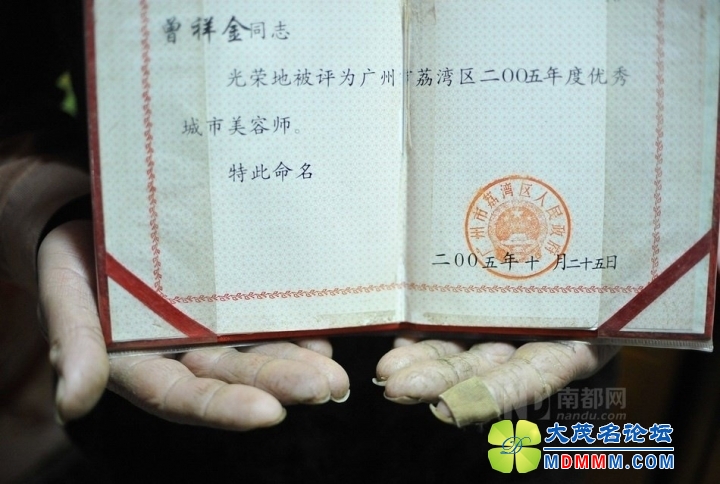 曾祥金同志
光荣地被评为广州市荔湾区二00五年度优秀
城市美容师。
特此命名
广州市荔湾区人民政府
二00五年十月二十五日
南都网
nandu.com
大茂名论坛
MDMMM.COM